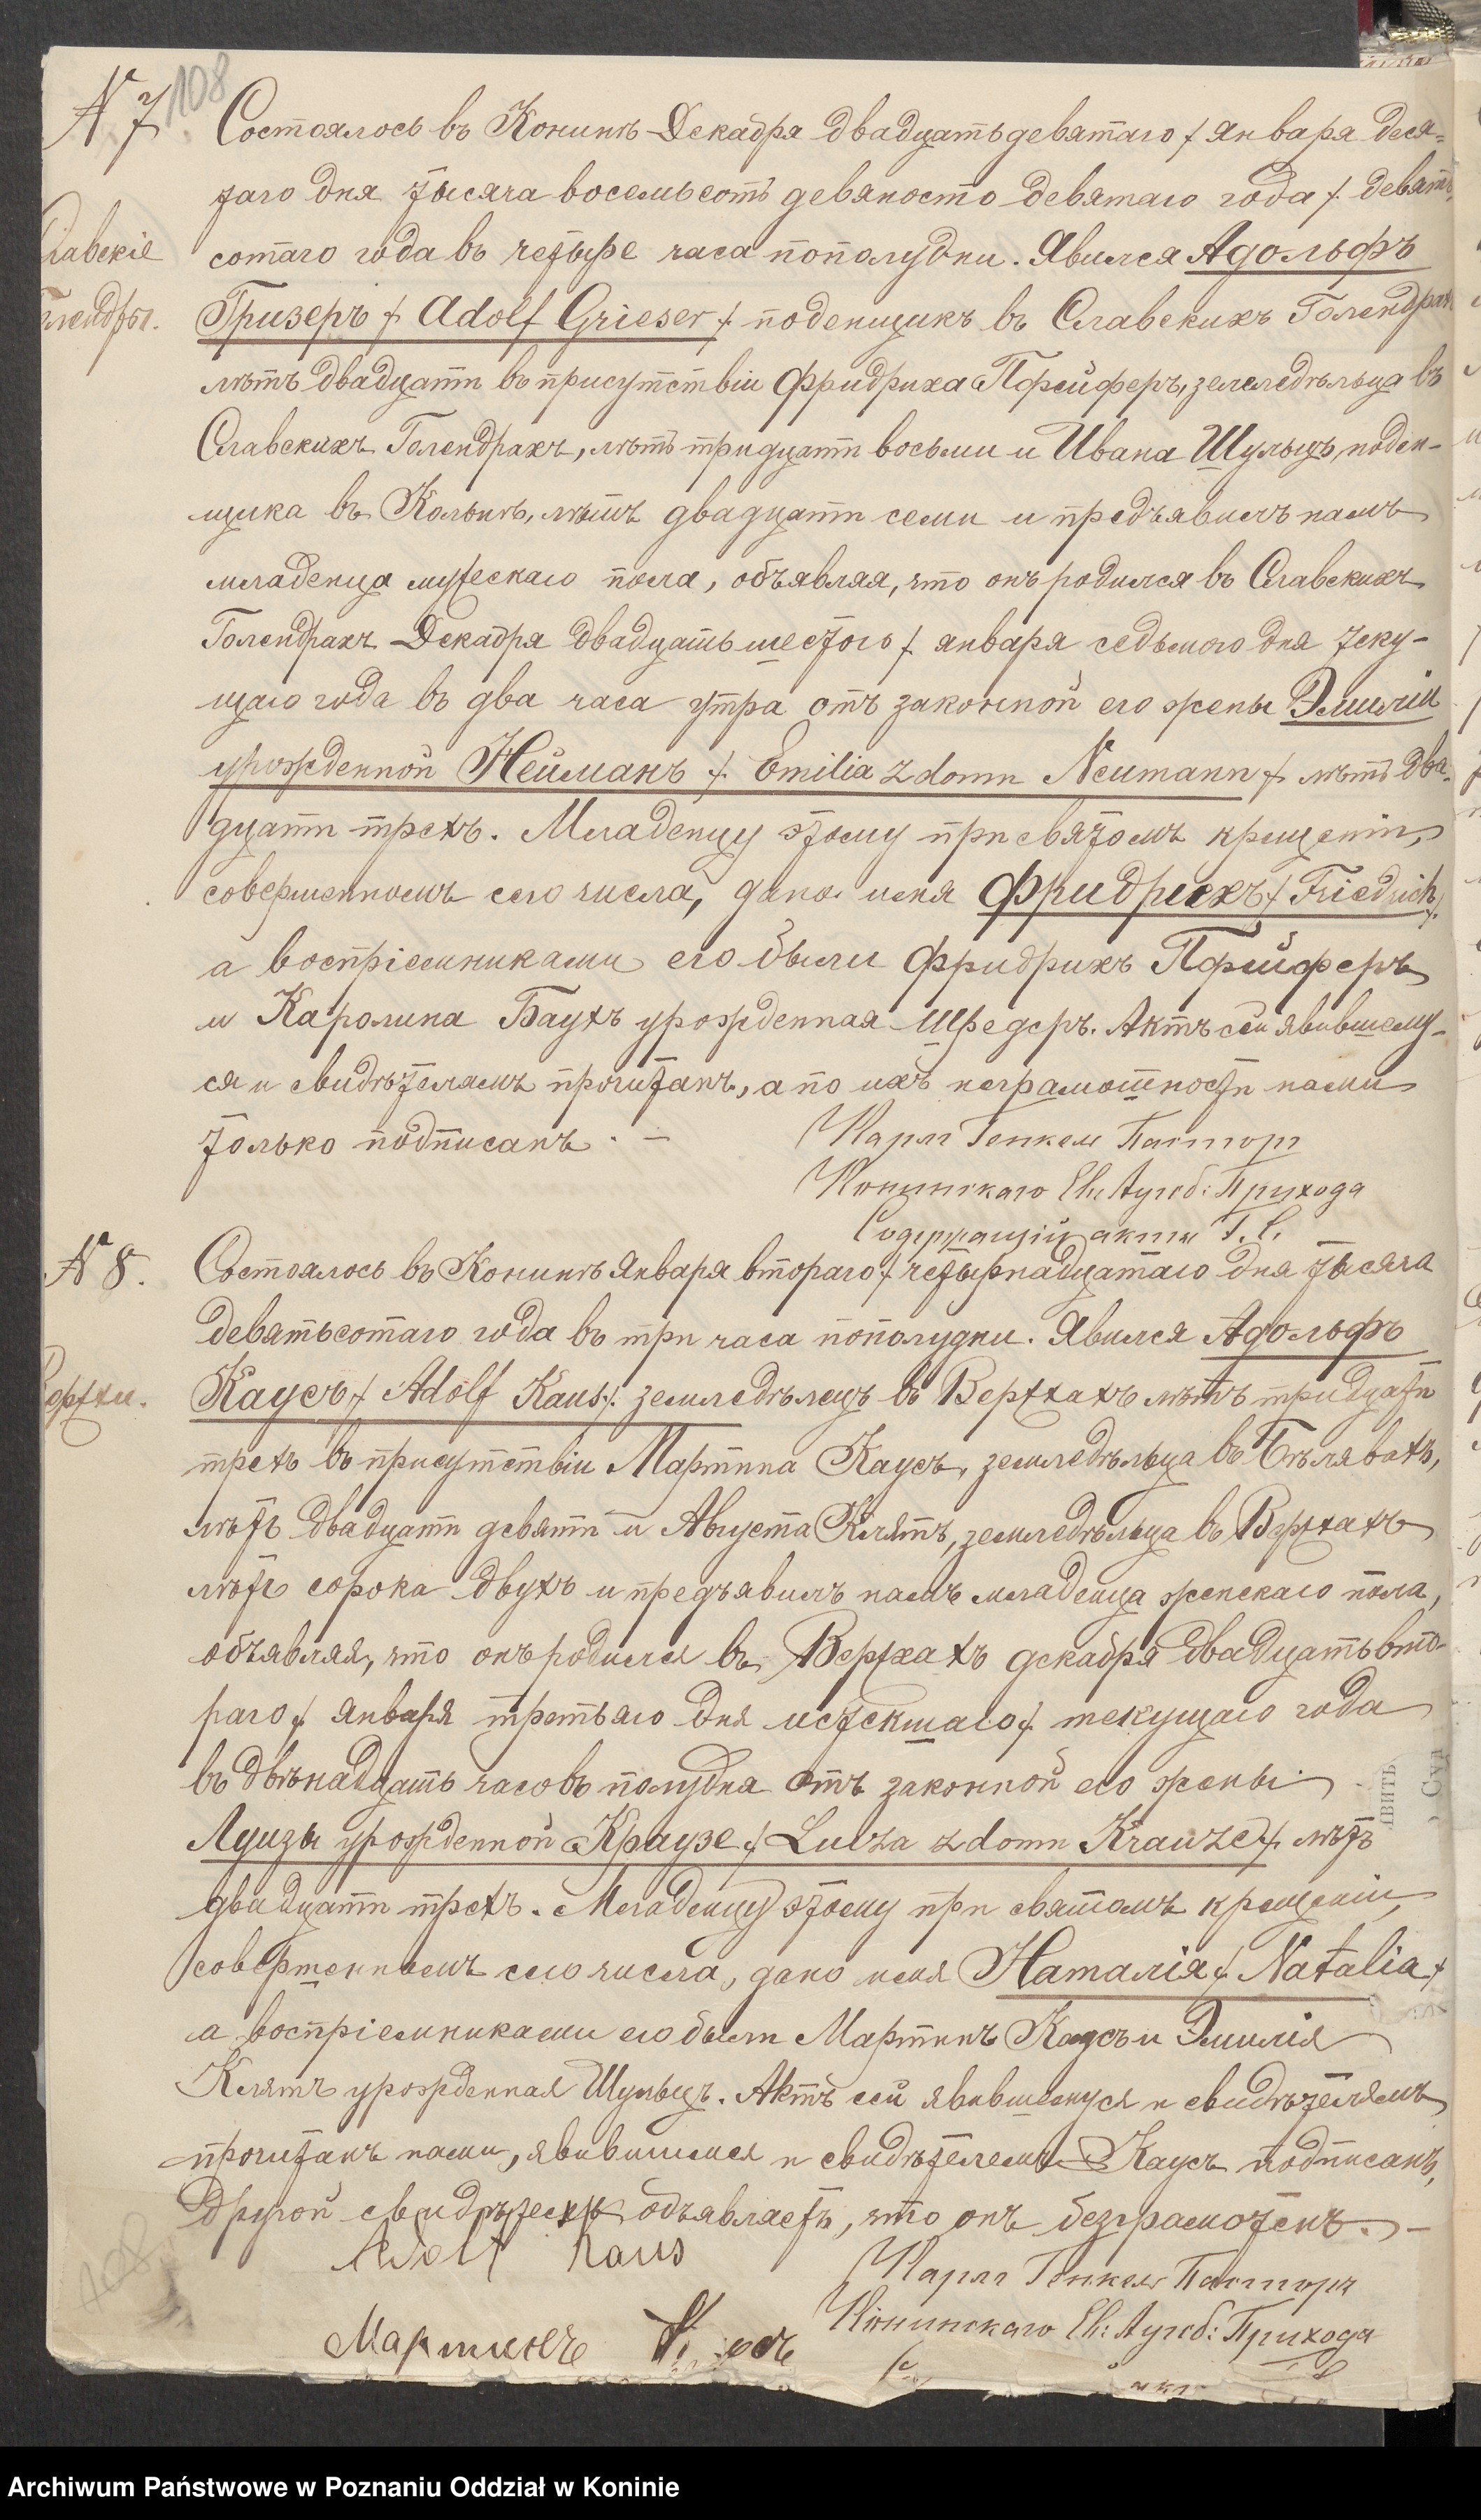 108
№ 7.
Состоялось въ Конинѣ Декабря двадцать девятаго / Января деся-
таго дня тысяча восемьсотъ девяносто девятаго года /. девять
сотаго года въ четыре часа пополудни. Явился Адольфъ
Славскіе
Голендры.
Гризеръ / Adolf Grieser / поденщикъ въ Славскихъ Голендрахъ
лѣтъ двадцати въ присутствіи Фридриха Пфейферъ, земледѣльца въ
Славскихъ Голендрахъ, лѣтъ тридцати восьми и Ивана Шульцъ, поден-
щика въ Кольнѣ, лѣтъ двадцати семи и предъявилъ намъ
младенца мужескаго пола, объявляя, что онъ родился въ Славскихъ
Голендрахъ Декабря двадцать шестого /. января седьмого дня теку-
щаго года въ два часа утра отъ законной его жены Эмиліи
урожденной Нейманъ /. Emilia z domu Neumann /. лѣтъ два-
дцати трехъ. Младенцу этому при святомъ крещеніи,
совершенномъ сего числа, дано имя Фридрихъ / Friedrich /.
а воспріемниками его были Фридрихъ Пфейферъ
и Каролина Баутъ урожденная Шредеръ. Актъ сей явившему-
ся и свидѣтелямъ прочитанъ, а по ихъ неграмотности нами
только подписанъ. —
Карлъ Генкель Пасторъ
Конинскаго Ев: Аугсб: Прихода
Содержащій акты Г. С.
№ 8.
Состоялось въ Конинѣ Января второго / четырнадцатаго дня тысяча
девятьсотаго года въ три часа пополудни. Явился Адольфъ
Вертхи.
Каусъ / Adolf Kaus /. земледѣлецъ въ Вертхахъ лѣтъ тридцати
трехъ въ присутствіи Мартина Каусъ, земледѣльца въ Бѣлявахъ,
лѣтъ двадцати девяти и Августа Клятъ, земледѣльца въ Вертхахъ
лѣтъ сорока двухъ и предъявилъ намъ младенца женскаго пола,
объявляя, что онъ родился въ Вертхахъ декабря двадцать вто-
раго / января третьяго дня истекшаго /. текущаго года
въ двѣнадцать часовъ полудня отъ законной его жены
Луизы урожденной Краузе / Luiza z domu Krauze /. лѣтъ
двадцати трехъ. Младенцу этому при святомъ крещеніи,
совершенномъ сего числа, дано имя Наталія / Natalia /
а воспріемниками его были Мартинъ Каусъ и Эмилія
Клятъ урожденная Шульцъ. Актъ сей явившемуся и свидѣтелямъ
прочитанъ нами, явившимся и свидѣтелемъ Каусъ подписанъ,
Другой свидѣтель объявляетъ, что онъ безграмотенъ. —
Adolf Kaus
Карлъ Генкель Пасторъ
Конинскаго Ев: Аугсб: Прихода
Мартинъ Каусъ
Archiwum Państwowe w Poznaniu Oddział w Koninie